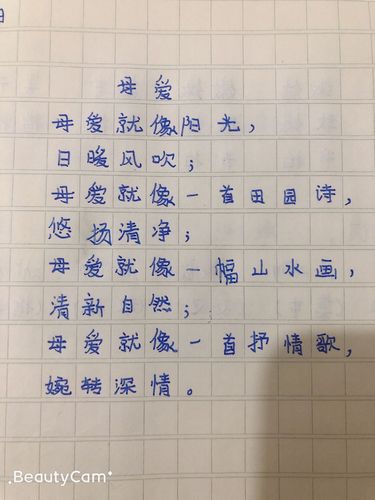 母爱
母爱就像阳光，
日暖风吹；
母爱就像一首田园诗，
悠扬清净；
母爱就像一幅山水画，
清新自然；
母爱就像一首抒情歌，
婉转深情。
BeautyCam